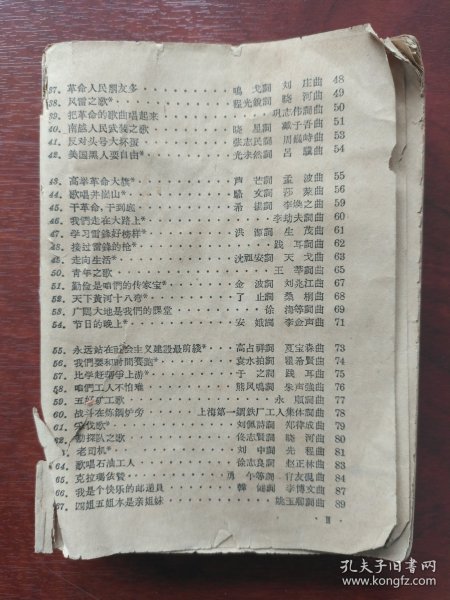 37. 革命人民朋友多 鳴戈詞 刘庄曲 48
38. 风雷之歌* 程光銳詞 晓河曲 49
39. 把革命的歌曲唱起来 巩志伟詞曲 50
40. 南越人民武装之歌 晓星詞 献子吾曲 51
41. 反对头号大坏蛋 张志民詞 周巍峙曲 53
42. 美国黑人要自由* 光未然詞 呂驥曲 54
43. 高举革命大旗* 芦芒詞 孟波曲 55
44. 歌唱井崗山* 曲 56
45. 干革命,干到底 希揚詞 李煥之曲 59
46. 我們走在大路上* 李劫夫詞曲 60
47. 学习雷鋒好榜样* 洪源詞 生茂曲 61
48. 接过雷鋒的枪* 践耳詞曲 62
49. 走向生活* 沈雅安詞 天戈曲 63
50. 青年之歌 王莘詞曲 65
51. 勤俭是咱們的传家宝* 金波詞 刘兆江曲 67
52. 天下黃河十八弯* 丁止詞 桑桐曲 68
53. 广闊天地是我們的課堂 徐海等詞曲 69
54. 节日的晚上* 安娥詞 李金声曲 71
55. 永远站在社会主义建設最前綫* 高占祥詞 夏宝森曲 73
56. 我們要和时間賽跑* 袁水拍詞 瞿希賢曲 74
57. 比学赶帮争上游* 于之詞 践耳曲 75
58. 咱們工人不怕难 熊凤鳴詞 朱声強曲 76
59. 五好矿工歌 永順詞曲 77
60. 战斗在炼鋼炉旁 上海第一鋼鉄厂工人集体詞曲 78
61. 采伐歌* 刘佩詩詞 郑律成曲 79
62. 勘探队之歌 佟志賢詞 晓河曲 80
63. 老司机* 刘中詞 先程曲 81
64. 歌唱石油工人 徐志良詞 赵正林曲 83
65. 克拉瑪依贊 勇午等詞 曲 84
66. 我是个快乐的邮递員 韓 詞 李博文曲 87
67. 四姐五姐本是亲姐妹 姚玉卿詞曲 89
II
孔夫子旧书网
www.kongfz.com